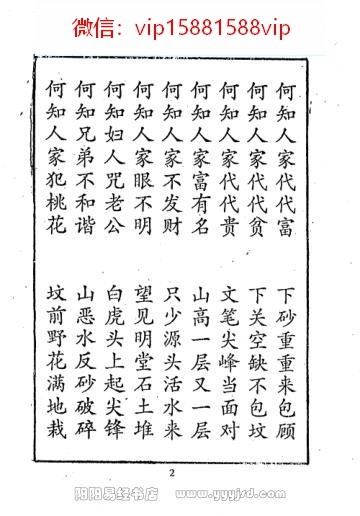 微信：vip15881588vip
何知人家代代富 下砂重重来包顾
何知人家代代贫 下关空缺不包坟
何知人家代代贵 文笔尖峰当面对
何知人家富有名 山高一层又一层
何知人家不发财 只少源头活水来
何知人家眼不明 望见明堂石土堆
何知妇人咒老公 白虎头上起尖锋
何知兄弟不和谐 山恶水反砂破碎
何知人家犯桃花 坟前野花满地栽
2
阴阳易经书店
www.yyyjsd.com